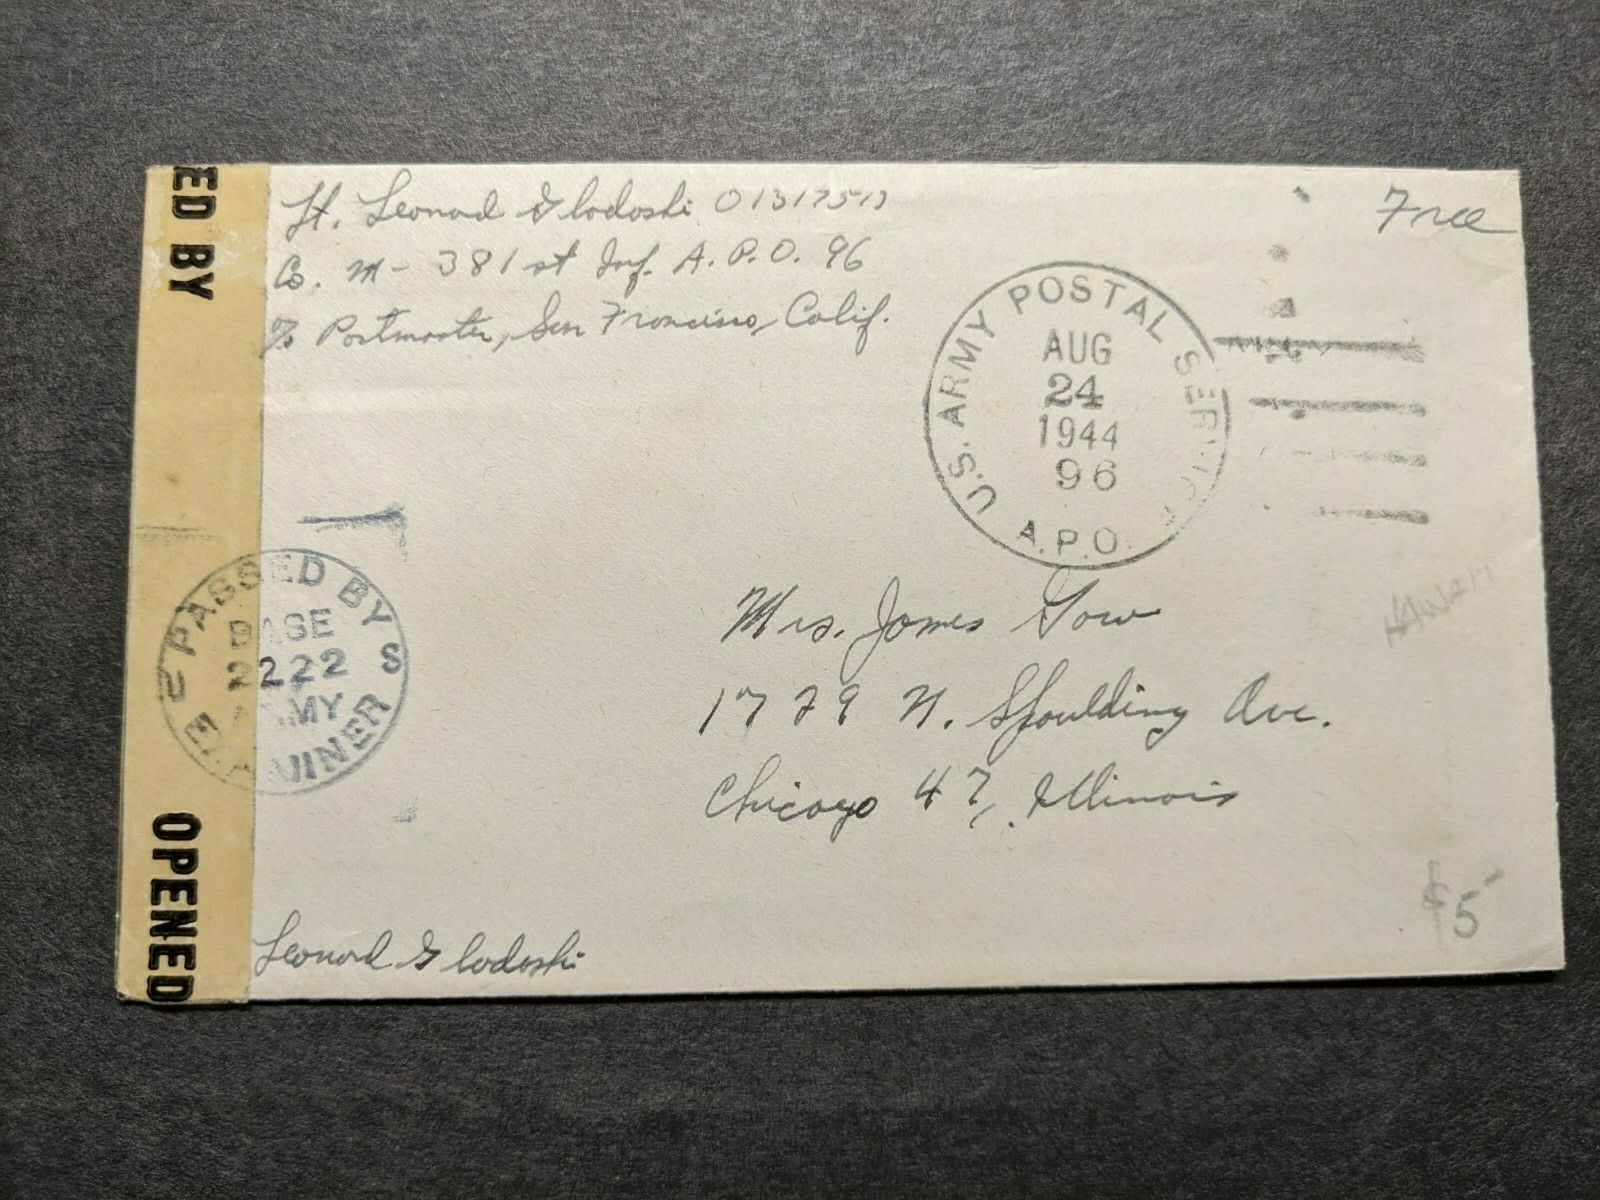 ED BY
Lt. Leonard Glodoski
Co. M - 381st Inf. A.P.O. 96
% Postmaster, San Francisco, Calif.
Free
U.S. ARMY POSTAL SERVICE
AUG
24
1944
96
A.P.O.
HAWAII
PASSED BY
BASE
2222
ARMY
EXAMINER
U S
Mrs. James Gow
1729 N. Spaulding Ave.
Chicago 47, Illinois
OPENED
Leonard Glodoski
5